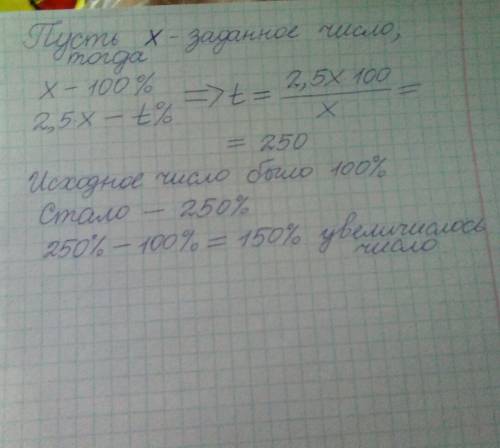 Пусть x - заданное число,
тогда
x - 100%
2,5·x - t% => t = 2,5x 100 / x =
= 250
Исходное число было 100%
Стало - 250%
250% - 100% = 150% увеличилось
число